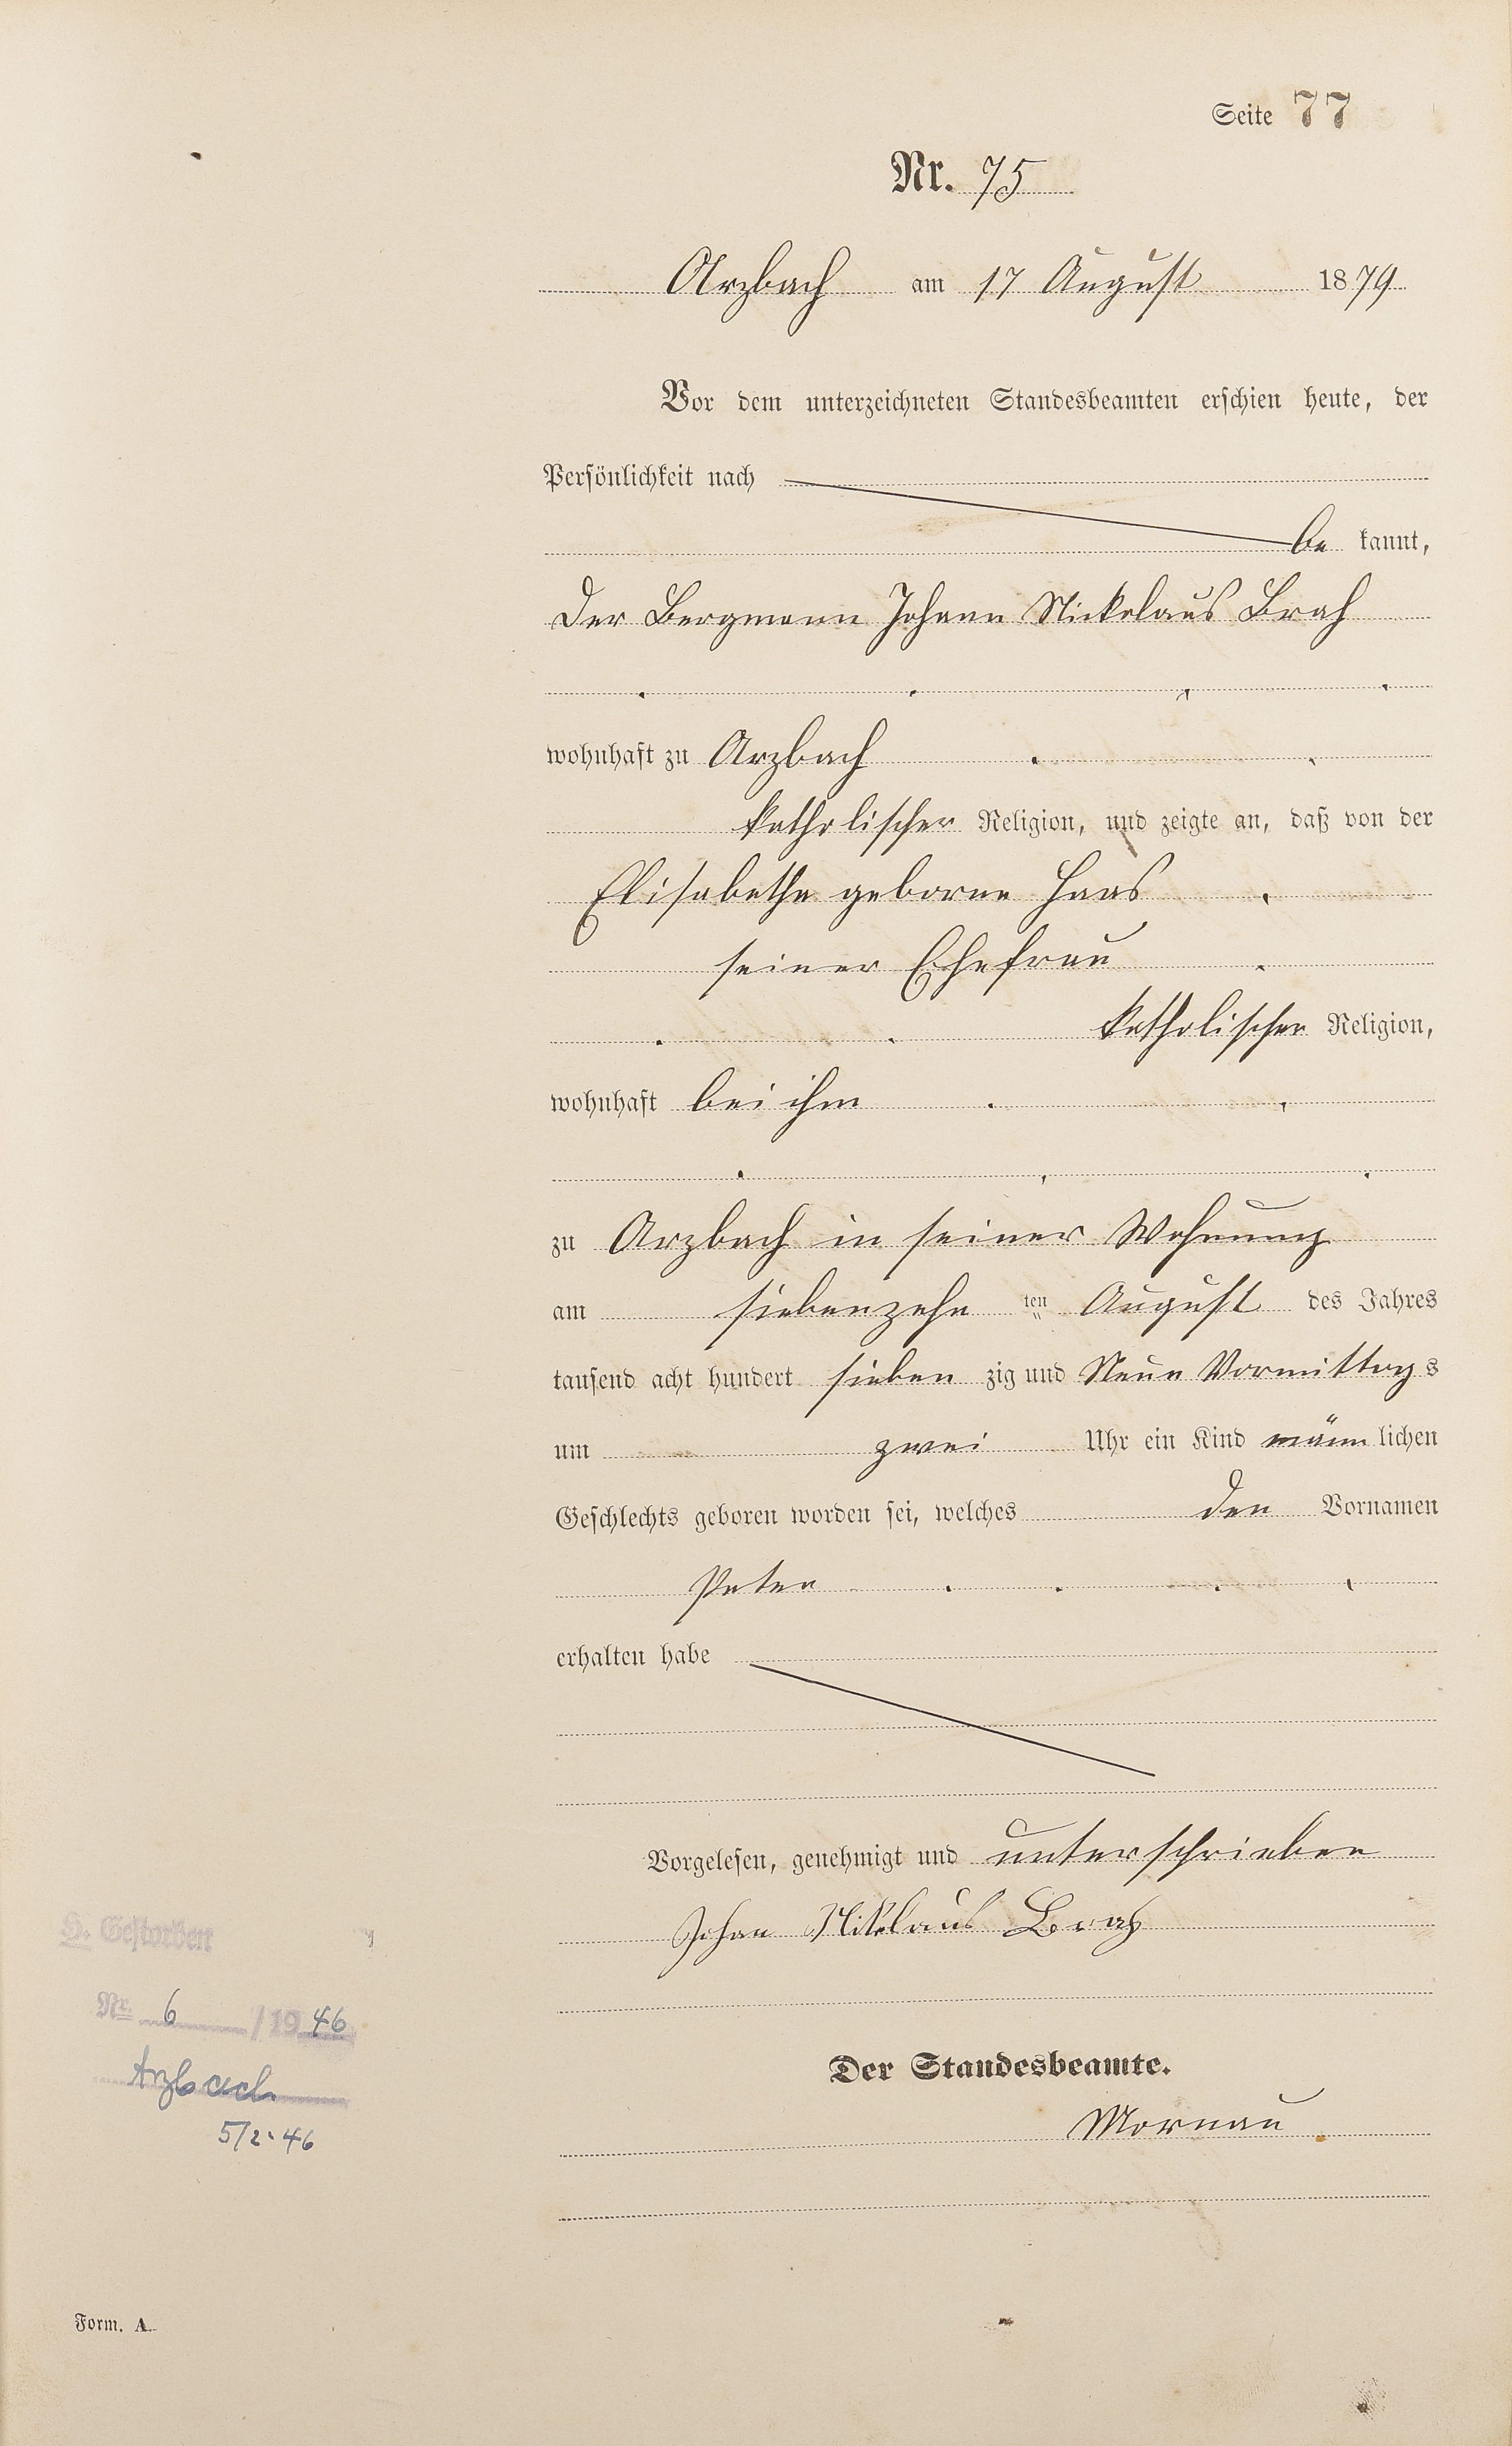 Seite 77
Nr. 75
Arzbach am 17 August 1879
Vor dem unterzeichneten Standesbeamten erschien heute, der
Persönlichkeit nach
be kannt,
der Bergmann Johann Nickolaus Brah
wohnhaft zu Arzbach
katholischer Religion, und zeigte an, daß von der
Elisabetha geborne Haas
seiner Ehefrau
katholischer Religion,
wohnhaft bei ihm
zu Arzbach in seiner Wohnung
am siebenzehn ten August des Jahres
tausend acht hundert sieben zig und Neun Vormittags
um zwei Uhr ein Kind männ lichen
Geschlechts geboren worden sei, welches den Vornamen
Peter
erhalten habe
Vorgelesen, genehmigt und unterschrieben
Johan Nikolaus Brah
Der Standesbeamte.
Mornau
H. Gestorben
Nr. 6 / 1946
Arzbach
5/2.46
Form. A.